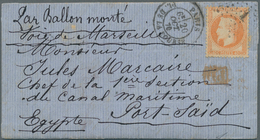 Par Ballon monté
Voie de Marseille
Monsieur
Jules Marcaire
Chef de la section
du Canal Maritime
Port-Saïd
Egypte
PARIS